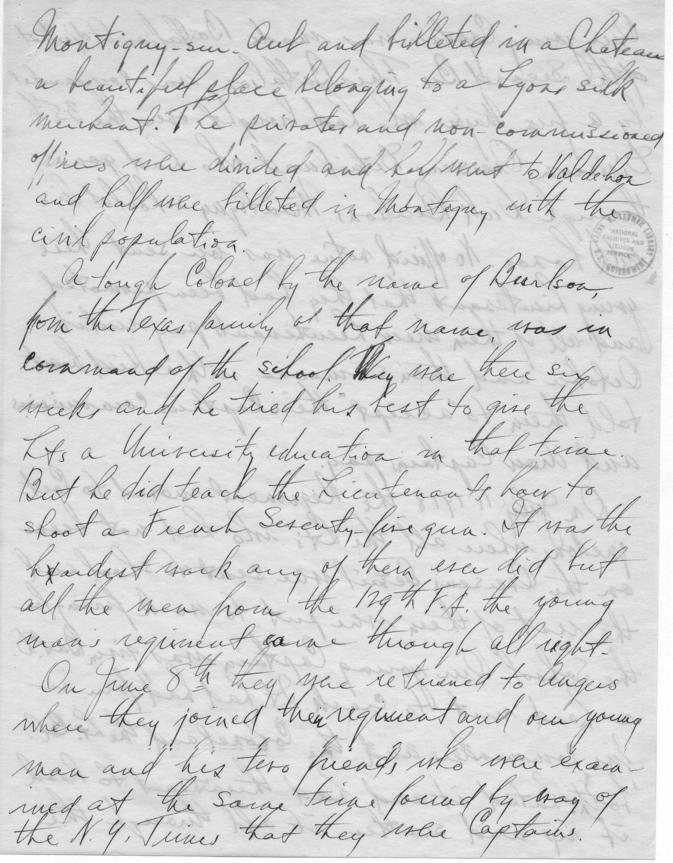 Montigny-sur-Aub and billeted in a Chateau
a beautiful place belonging to a Lyons silk
merchant. The privates and non-commissioned
officers were divided and half went to Valdehon
and half were billeted in Montigny with the
civil population.
A tough Colonel by the name of Burlson,
from the Texas family of that name, was in
command of the school. They were there six
weeks and he tried his best to give the
Lts a University education in that time.
But he did teach the Lieutenants how to
shoot a French Seventy-five gun. It was the
hardest work any of them ever did but
all the men from the 129th F.A. the young
man's regiment came through all right.
On June 8th they were returned to Angers
where they joined their regiment and our young
man and his two friends who were exam-
ined at the same time found by way of
the N.Y. Times that they were Captains.
NATIONAL
ARCHIVES AND